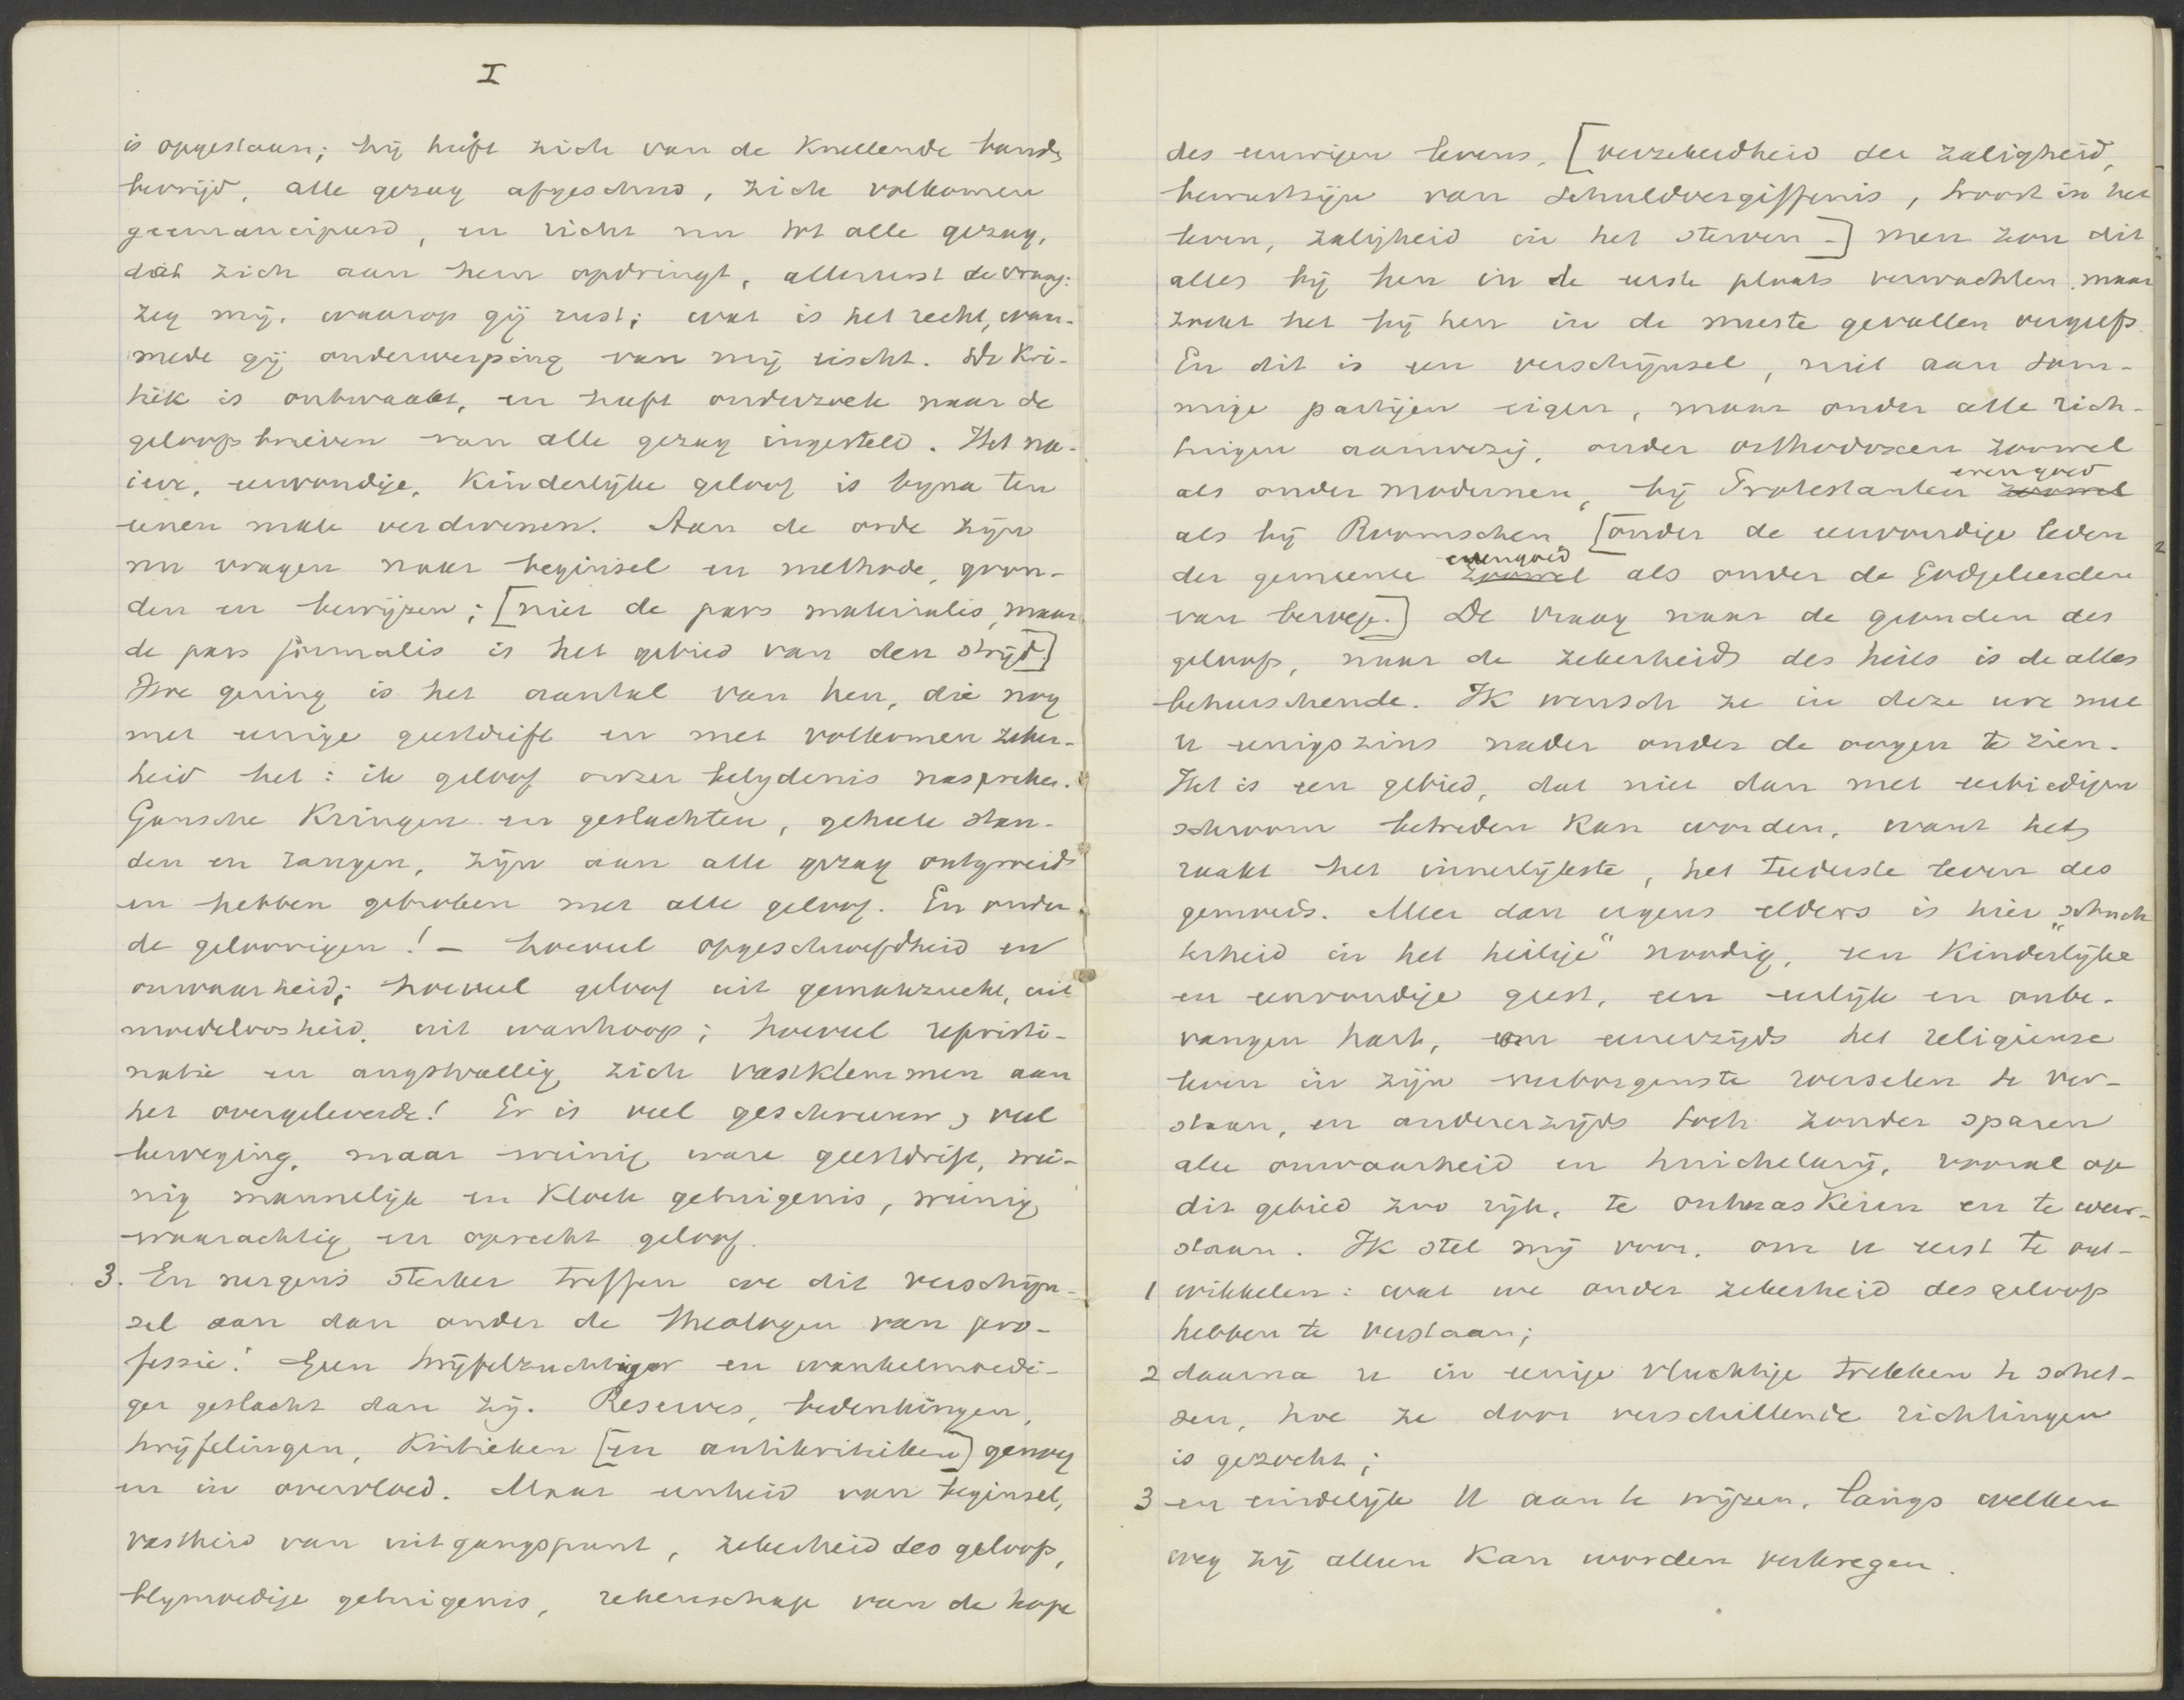 I
is opgestaan; hij heeft zich van de knellende band
bevrijd, alle gezag afgeschud, zich volkomen
geemancipeerd, en richt nu tot alle gezag,
dat zich aan hem opdringt, allereerst de vraag:
zeg mij, waarop gij rust; wat is het recht, waar-
mede gij onderwerping van mij eischt. De Kri-
tiek is ontwaakt, en heeft onderzoek naar de
geloofsbrieven van alle gezag ingesteld. Het na-
ieve, eenvoudige, Kinderlijke geloof is byna ten
eenen male verdwenen. Aan de orde zijn
nu vragen naar beginsel en methode, gron-
den en bewijzen; [niet de pars materialis, maar
de pars formalis is het gebied van den strijd]
Hoe gering is het aantal van hen, die nog
met eenige geestdrift en met volkomen zeker-
heid het: ik geloof onzer belydenis naspreken.
Gansche Kringen en geslachten, geheele stan-
den en rangen, zijn aan alle gezag ontgroeid
en hebben gebroken met alle geloof. En onder
de geloovigen! - hoeveel opgeschroefdheid en
onwaarheid; hoeveel geloof uit gemakzucht, uit
moedeloosheid, uit wanhoop; hoeveel repristi-
natie en angstvallig zich vastklemmen aan
het overgeleverde! Er is veel geschreeuw, veel
beweging, maar weinig ware geestdrift, wei-
nig mannelijk en Kloek getuigenis, weinig
waarachtig en oprecht geloof.
3. En nergens sterker treffen we dit verschijn-
sel aan dan onder de theologen van pro-
fessie! Geen twijfelzuchtiger en wankelmoedi-
ger geslacht dan zij. Reserves, bedenkingen,
twijfelingen, Kritieken [en antikritieken] genoeg
en in overvloed. Maar eenheid van beginsel,
vastheid van uitgangspunt, zekerheid des geloofs,
blymoedige getuigenis, rekenschap van de hope
des eeuwigen levens, [verzekerdheid der zaligheid,
bewustzijn van schuldvergiffenis, troost in het
leven, zaligheid in het sterven -] men zou dit
alles bij hen in de eerste plaats verwachten maar
zoekt het bij hen in de meeste gevallen vergeefs.
En dit is een verschijnsel, niet aan som-
mige partijen eigen, maar onder alle rich-
tingen aanwezig, onder orthodoxen zoowel
als onder modernen, bij Protestanten zoowel evengoed
als bij Roomschen, [onder de eenvoudige leden
der gemeente zoowel evengoed als onder de Godgeleerden
van beroep.] De vraag naar de gronden des
geloofs, naar de zekerheid des heils is de alles
beheerschende. Ik wensch ze in deze ure met
u eenigszins nader onder de oogen te zien.
Het is een gebied, dat niet dan met eerbiedigen
schroom betreden Kan worden, want het
raakt het innerlijkste, het teederste leven des
gemoeds. Meer dan ergens elders is hier "schuch-
terheid in het heilige" noodig, een Kinderlijke
en eenvoudige geest, een eerlijk en onbe-
vangen hart, om eenerzijds het religieuse
leven in zijn verborgenste roerselen te ver-
staan, en andererzijds toch zonder sparen
alle onwaarheid en huichelarij, vooral op
dit gebied zoo rijk, te ontmaskeren en te weer-
staan. Ik stel mij voor, om u eerst te ont-
1 wikkelen: wat we onder zekerheid des geloofs
hebben te verstaan;
2 daarna u in eenige vluchtige trekken te schet-
sen, hoe ze door verschillende richtingen
is gezocht;
3 en eindelijk U aan te wijzen, langs welken
weg zij alleen Kan worden verkregen.